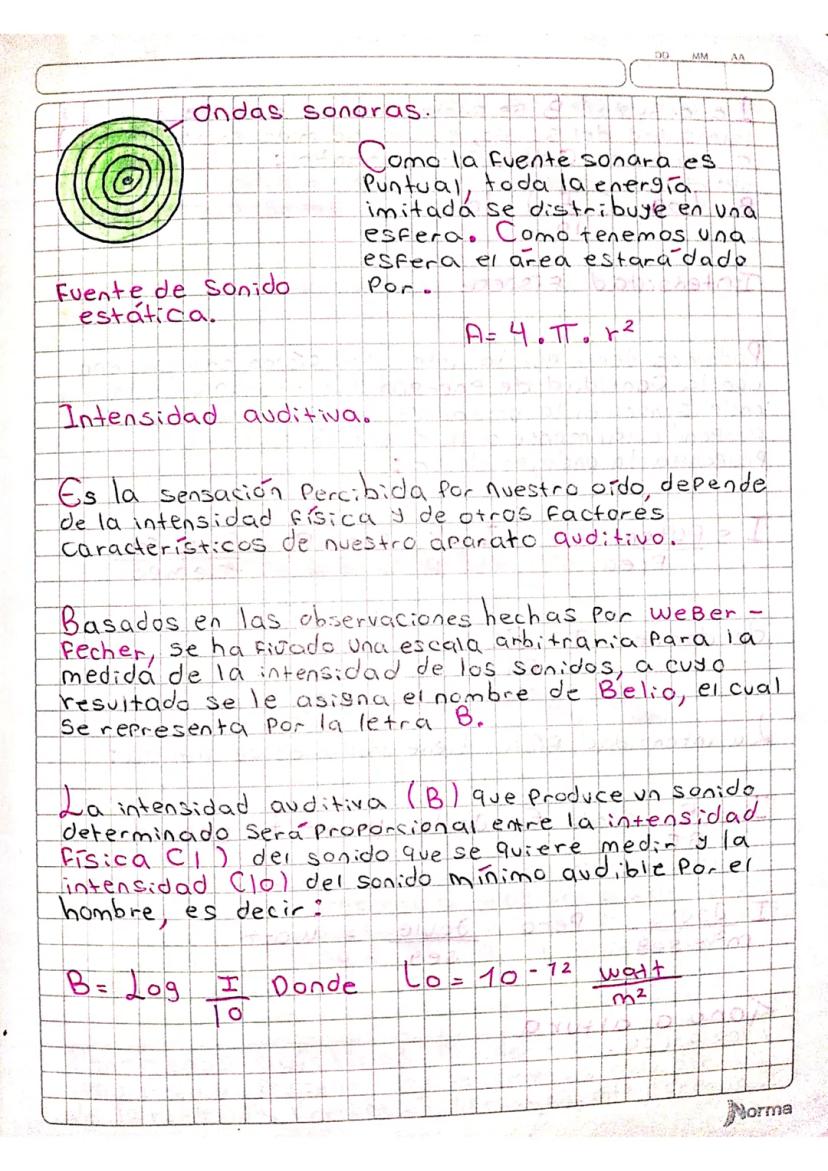 DD MM AA
ondas sonoras.
Como la fuente sonara es
Puntual, toda la energía
imitada se distribuye en una
esfera. Como tenemos una
esfera el área estará dado
Por.
Fuente de sonido
estática.
A= 4 . π . r²
Intensidad auditiva.
Es la sensación Percibida Por nuestro oído, depende
de la intensidad física y de otros factores
característicos de nuestro aparato auditivo.
Basados en las observaciones hechas Por Weber -
Fecher, se ha fijado una escala arbitraria Para la
medida de la intensidad de los sonidos, a cuyo
resultado se le asigna el nombre de Belio, el cual
se representa Por la letra B.
La intensidad auditiva (B) que Produce un sonido
determinado será Proporcional entre la intensidad
física (I) del sonido que se quiere medir y la
intensidad (Io) del sonido mínimo audible Por el
hombre, es decir:
B= Log I/Io Donde Io = 10⁻¹² watt/m²
Norma